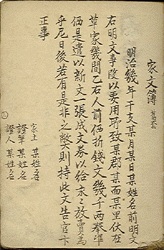 家文簿
明治幾年干支某月某日某姓名前明文
右明文事段以要用所致某郡某面某里伏在
草家幾間乙右人前価折錢文幾千両依準
価是遣以新文一張成文券以給
乎尼日後若有是非之弊則持此文告官卞
正事
家主 某姓名
證筆 某姓名
證人 某姓名